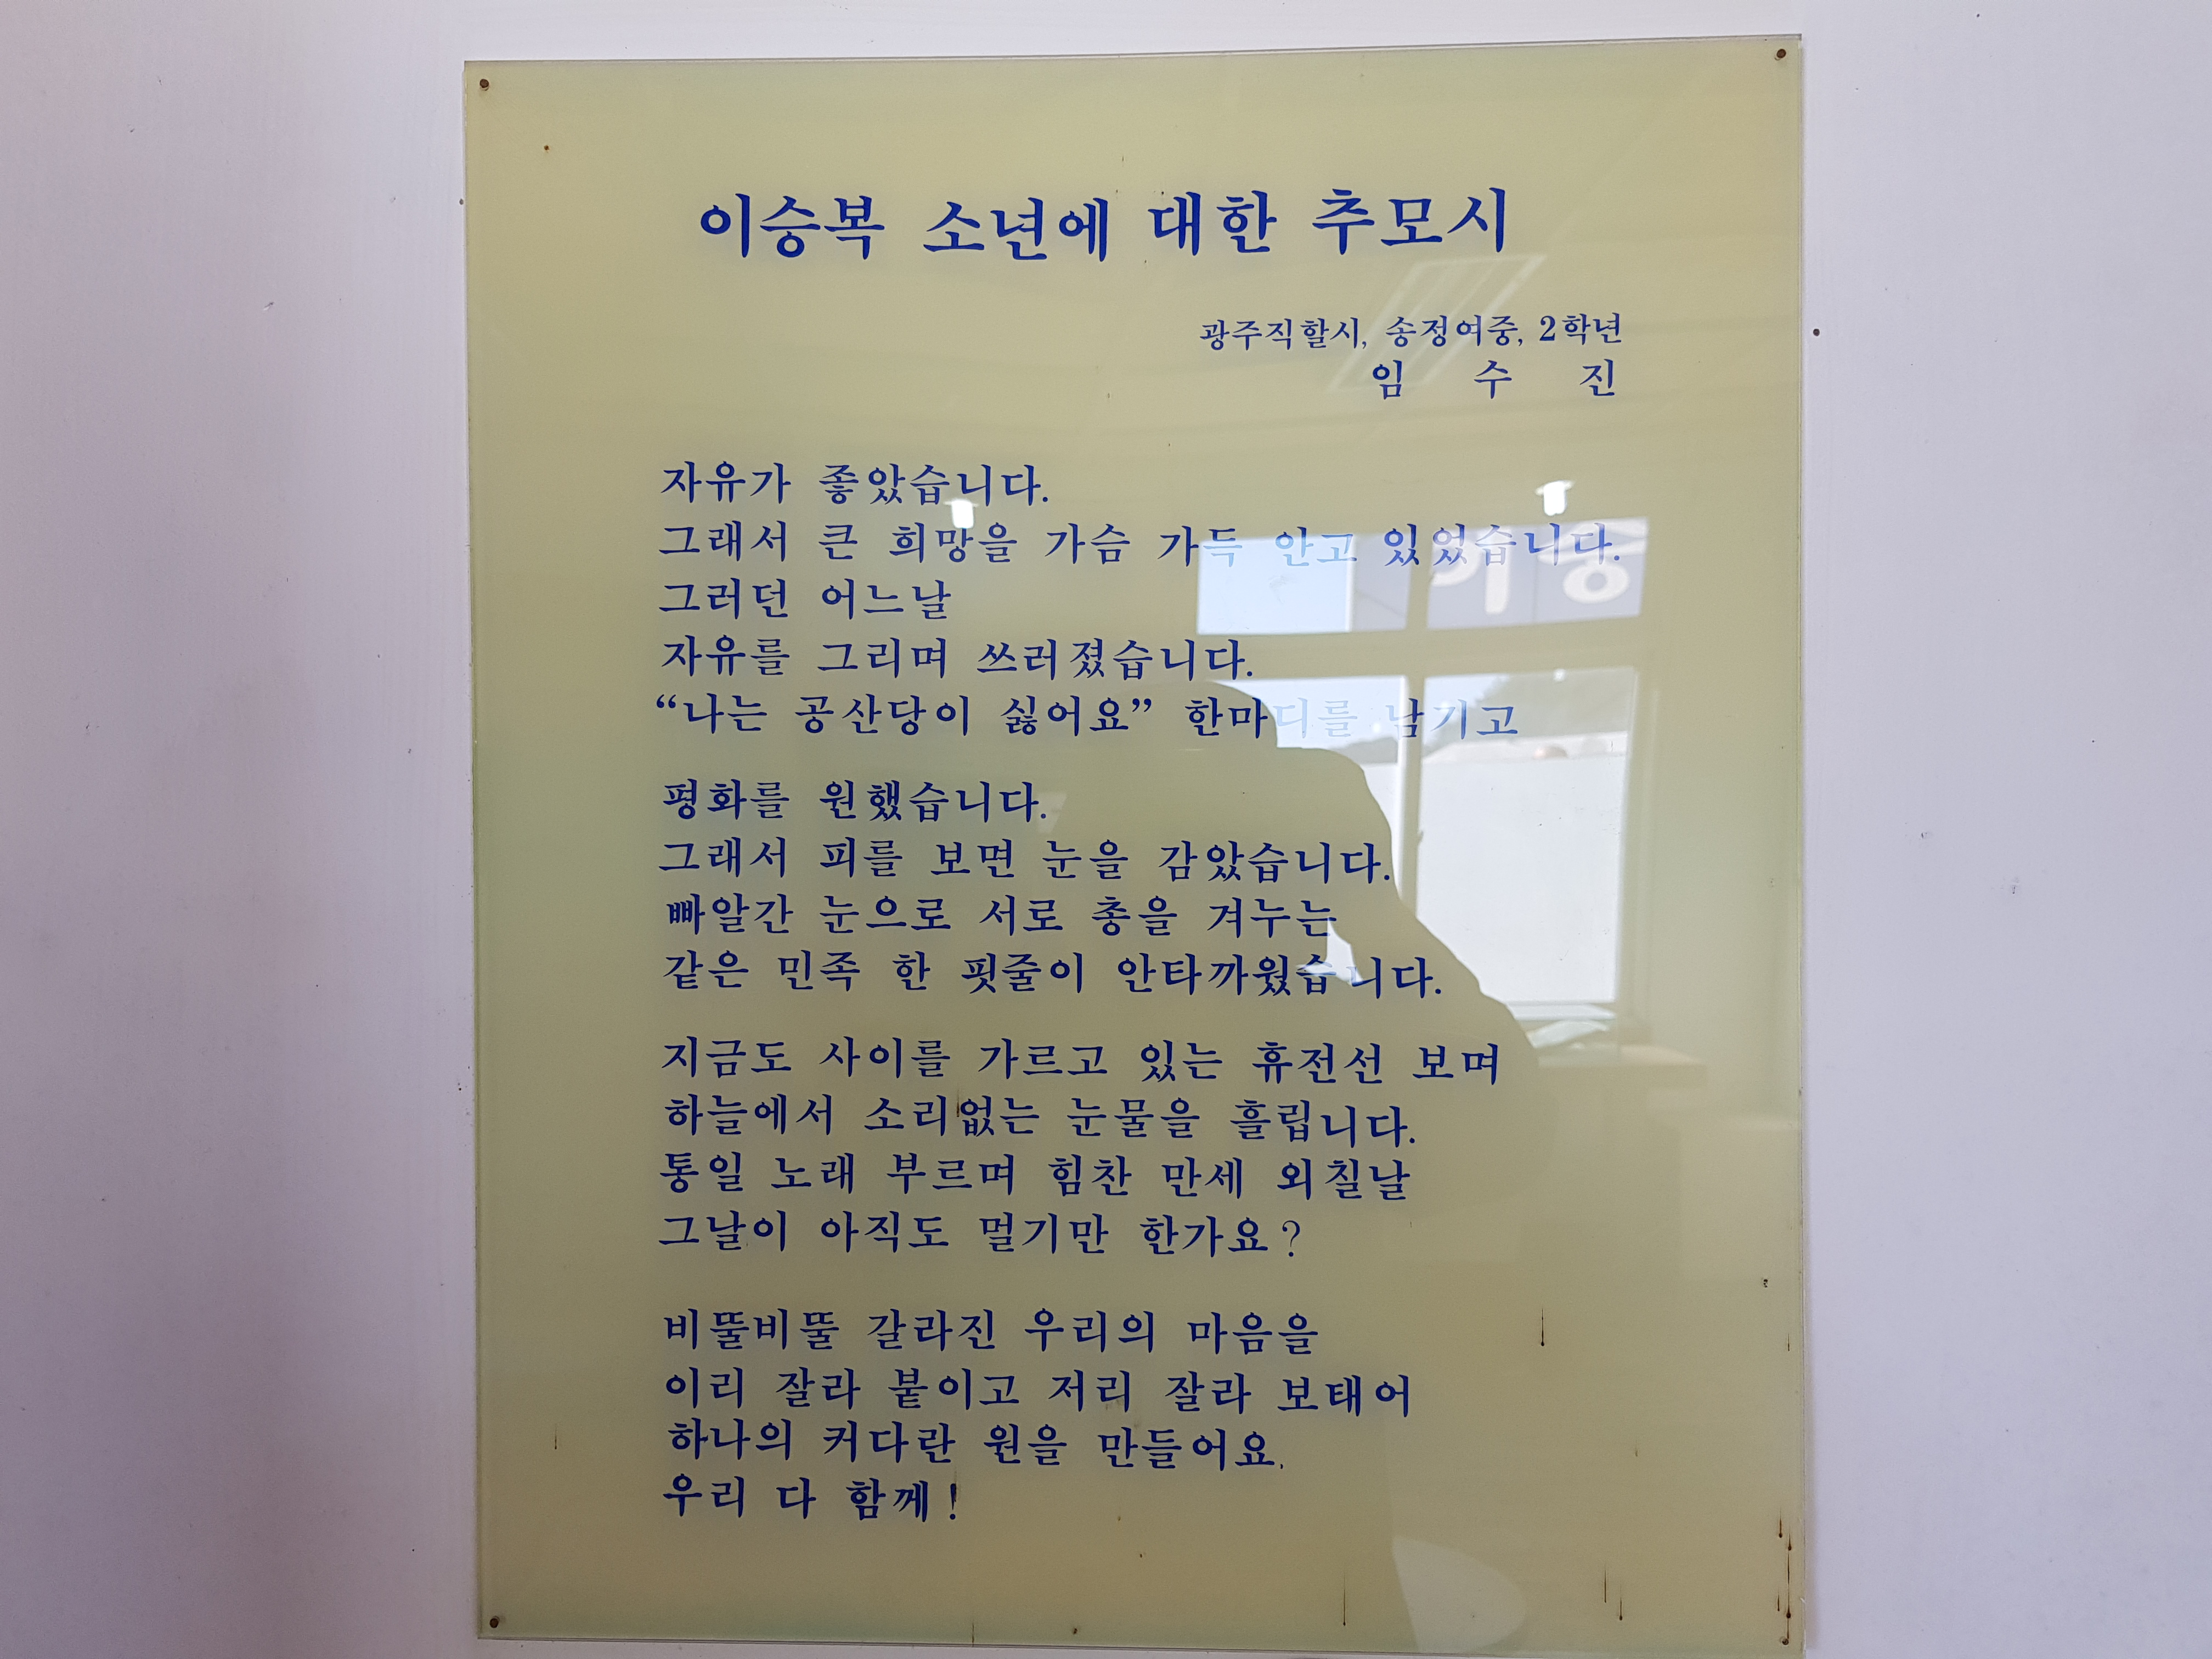 이승복 소년에 대한 추모시
광주직할시, 송정여중, 2학년
임 수 진
자유가 좋았습니다.
그래서 큰 희망을 가슴 가득 안고 있었습니다.
그러던 어느날
자유를 그리며 쓰러졌습니다.
“나는 공산당이 싫어요” 한마디를 남기고
평화를 원했습니다.
그래서 피를 보면 눈을 감았습니다.
빠알간 눈으로 서로 총을 겨누는
같은 민족 한 핏줄이 안타까웠습니다.
지금도 사이를 가르고 있는 휴전선 보며
하늘에서 소리없는 눈물을 흘립니다.
통일 노래 부르며 힘찬 만세 외칠날
그날이 아직도 멀기만 한가요?
비뚤비뚤 갈라진 우리의 마음을
이리 잘라 붙이고 저리 잘라 보태어
하나의 커다란 원을 만들어요.
우리 다 함께!